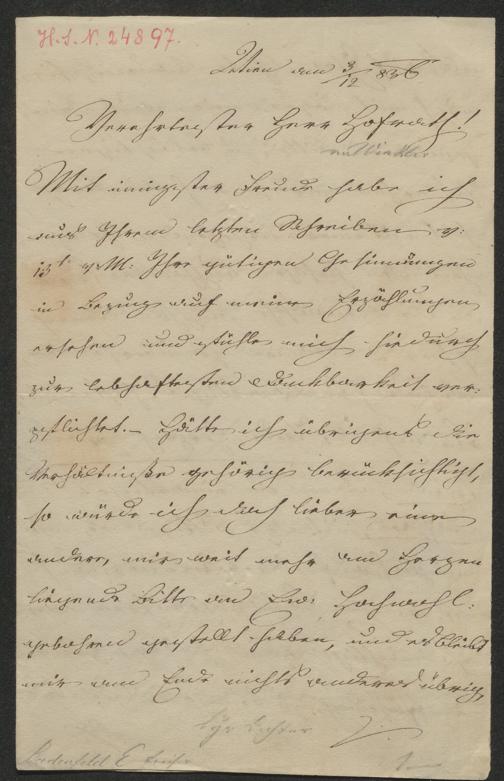 H.I.N. 24897.
Wien am 3/12 836
Verehrtester Herr Hofrath!
an Winkler
Mit innigster Freude habe ich
aus Ihrem letzten Schreiben v:
13t v. M: Ihre gütigen Gesinnungen
in Bezug auf meine Erzählungen
ersehen und fühle mich hiedurch
zur lebhaftesten Dankbarkeit ver-
pflichtet. – Hätte ich übrigens die
Verhältniße gehörig berücksichtigt,
so würde ich doch lieber eine
andere, mir weit mehr am Herzen
liegende Bitte an Euer Hochwohl:
gebohren gestellt haben, und es bleibt
mir am Ende nichts anderes übrig,